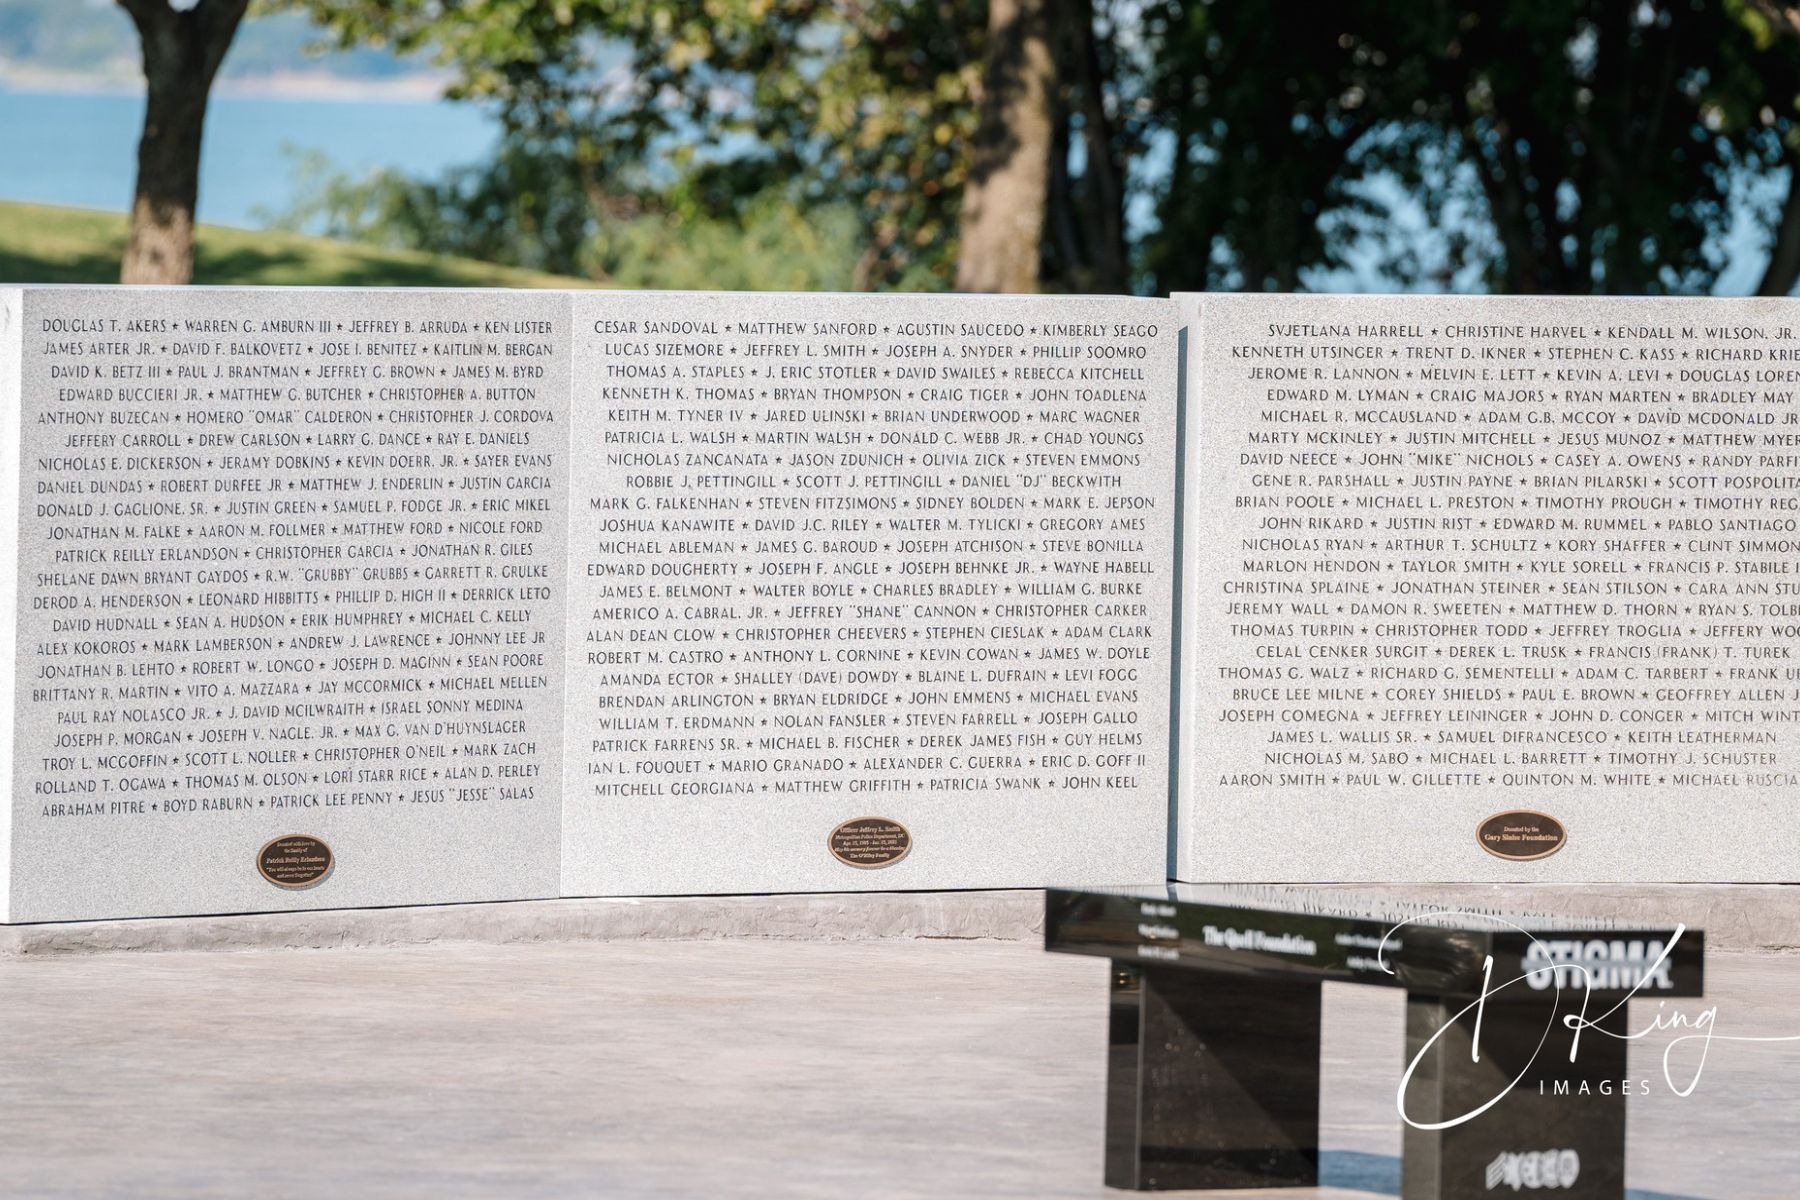 DOUGLAS T. AKERS ★ WARREN G. AMBURN III ★ JEFFREY B. ARRUDA ★ KEN LISTER
JAMES ARTER JR. ★ DAVID F. BALKOVETZ ★ JOSE I. BENITEZ ★ KAITLIN M. BERGAN
DAVID K. BETZ III ★ PAUL J. BRANTMAN ★ JEFFREY G. BROWN ★ JAMES M. BYRD
EDWARD BUCCIERI JR. ★ MATTHEW G. BUTCHER ★ CHRISTOPHER A. BUTTON
ANTHONY BUZECAN ★ HOMERO "OMAR" CALDERON ★ CHRISTOPHER J. CORDOVA
JEFFERY CARROLL ★ DREW CARLSON ★ LARRY G. DANCE ★ RAY E. DANIELS
NICHOLAS E. DICKERSON ★ JERAMY DOBKINS ★ KEVIN DOERR, JR. ★ SAYER EVANS
DANIEL DUNDAS ★ ROBERT DURFEE JR ★ MATTHEW J. ENDERLIN ★ JUSTIN GARCIA
DONALD J. GAGLIONE, SR. ★ JUSTIN GREEN ★ SAMUEL P. FODGE JR. ★ ERIC MIKEL
JONATHAN M. FALKE ★ AARON M. FOLLMER ★ MATTHEW FORD ★ NICOLE FORD
PATRICK REILLY ERLANDSON ★ CHRISTOPHER GARCIA ★ JONATHAN R. GILES
SHELANE DAWN BRYANT GAYDOS ★ R.W. "GRUBBY" GRUBBS ★ GARRETT R. GRULKE
DEROD A. HENDERSON ★ LEONARD HIBBITTS ★ PHILLIP D. HIGH II ★ DERRICK LETO
DAVID HUDNALL ★ SEAN A. HUDSON ★ ERIK HUMPHREY ★ MICHAEL C. KELLY
ALEX KOKOROS ★ MARK LAMBERSON ★ ANDREW J. LAWRENCE ★ JOHNNY LEE JR
JONATHAN B. LEHTO ★ ROBERT W. LONGO ★ JOSEPH D. MAGINN ★ SEAN POORE
BRITTANY R. MARTIN ★ VITO A. MAZZARA ★ JAY MCCORMICK ★ MICHAEL MELLEN
PAUL RAY NOLASCO JR. ★ J. DAVID MCILWRAITH ★ ISRAEL SONNY MEDINA
JOSEPH P. MORGAN ★ JOSEPH V. NAGLE, JR. ★ MAX G. VAN D'HUYNSLAGER
TROY L. MCGOFFIN ★ SCOTT L. NOLLER ★ CHRISTOPHER O'NEIL ★ MARK ZACH
ROLLAND T. OGAWA ★ THOMAS M. OLSON ★ LORI STARR RICE ★ ALAN D. PERLEY
ABRAHAM PITRE ★ BOYD RABURN ★ PATRICK LEE PENNY ★ JESUS "JESSE" SALAS
Donated with love by
the family of
Patrick Reilly Erlandson
"You will always be in our hearts
and never forgotten"
CESAR SANDOVAL ★ MATTHEW SANFORD ★ AGUSTIN SAUCEDO ★ KIMBERLY SEAGO
LUCAS SIZEMORE ★ JEFFREY L. SMITH ★ JOSEPH A. SNYDER ★ PHILLIP SOOMRO
THOMAS A. STAPLES ★ J. ERIC STOTLER ★ DAVID SWAILES ★ REBECCA KITCHELL
KENNETH K. THOMAS ★ BRYAN THOMPSON ★ CRAIG TIGER ★ JOHN TOADLENA
KEITH M. TYNER IV ★ JARED ULINSKI ★ BRIAN UNDERWOOD ★ MARC WAGNER
PATRICIA L. WALSH ★ MARTIN WALSH ★ DONALD C. WEBB JR. ★ CHAD YOUNGS
NICHOLAS ZANCANATA ★ JASON ZDUNICH ★ OLIVIA ZICK ★ STEVEN EMMONS
ROBBIE J. PETTINGILL ★ SCOTT J. PETTINGILL ★ DANIEL "DJ" BECKWITH
MARK G. FALKENHAN ★ STEVEN FITZSIMONS ★ SIDNEY BOLDEN ★ MARK E. JEPSON
JOSHUA KANAWITE ★ DAVID J.C. RILEY ★ WALTER M. TYLICKI ★ GREGORY AMES
MICHAEL ABLEMAN ★ JAMES G. BAROUD ★ JOSEPH ATCHISON ★ STEVE BONILLA
EDWARD DOUGHERTY ★ JOSEPH F. ANGLE ★ JOSEPH BEHNKE JR. ★ WAYNE HABELL
JAMES E. BELMONT ★ WALTER BOYLE ★ CHARLES BRADLEY ★ WILLIAM G. BURKE
AMERICO A. CABRAL, JR. ★ JEFFREY "SHANE" CANNON ★ CHRISTOPHER CARKER
ALAN DEAN CLOW ★ CHRISTOPHER CHEEVERS ★ STEPHEN CIESLAK ★ ADAM CLARK
ROBERT M. CASTRO ★ ANTHONY L. CORNINE ★ KEVIN COWAN ★ JAMES W. DOYLE
AMANDA ECTOR ★ SHALLEY (DAVE) DOWDY ★ BLAINE L. DUFRAIN ★ LEVI FOGG
BRENDAN ARLINGTON ★ BRYAN ELDRIDGE ★ JOHN EMMENS ★ MICHAEL EVANS
WILLIAM T. ERDMANN ★ NOLAN FANSLER ★ STEVEN FARRELL ★ JOSEPH GALLO
PATRICK FARRENS SR. ★ MICHAEL B. FISCHER ★ DEREK JAMES FISH ★ GUY HELMS
IAN L. FOUQUET ★ MARIO GRANADO ★ ALEXANDER C. GUERRA ★ ERIC D. GOFF II
MITCHELL GEORGIANA ★ MATTHEW GRIFFITH ★ PATRICIA SWANK ★ JOHN KEEL
Officer Jeffrey L. Smith
Metropolitan Police Department, DC
May his memory forever be a blessing
Family
SVJETLANA HARRELL ★ CHRISTINE HARVEL ★ KENDALL M. WILSON, JR.
KENNETH UTSINGER ★ TRENT D. IKNER ★ STEPHEN C. KASS ★ RICHARD KRIE
JEROME R. LANNON ★ MELVIN E. LETT ★ KEVIN A. LEVI ★ DOUGLAS LOREN
EDWARD M. LYMAN ★ CRAIG MAJORS ★ RYAN MARTEN ★ BRADLEY MAY
MICHAEL R. MCCAUSLAND ★ ADAM G.B. MCCOY ★ DAVID MCDONALD JR
MARTY MCKINLEY ★ JUSTIN MITCHELL ★ JESUS MUNOZ ★ MATTHEW MYER
DAVID NEECE ★ JOHN "MIKE" NICHOLS ★ CASEY A. OWENS ★ RANDY PARFI
GENE R. PARSHALL ★ JUSTIN PAYNE ★ BRIAN PILARSKI ★ SCOTT POSPOLITA
BRIAN POOLE ★ MICHAEL L. PRESTON ★ TIMOTHY PROUGH ★ TIMOTHY REG
JOHN RIKARD ★ JUSTIN RIST ★ EDWARD M. RUMMEL ★ PABLO SANTIAGO
NICHOLAS RYAN ★ ARTHUR T. SCHULTZ ★ KORY SHAFFER ★ CLINT SIMMON
MARLON HENDON ★ TAYLOR SMITH ★ KYLE SORELL ★ FRANCIS P. STABILE I
CHRISTINA SPLAINE ★ JONATHAN STEINER ★ SEAN STILSON ★ CARA ANN STU
JEREMY WALL ★ DAMON R. SWEETEN ★ MATTHEW D. THORN ★ RYAN S. TOLB
THOMAS TURPIN ★ CHRISTOPHER TODD ★ JEFFREY TROGLIA ★ JEFFERY WOO
CELAL CENKER SURGIT ★ DEREK L. TRUSK ★ FRANCIS (FRANK) T. TUREK
THOMAS G. WALZ ★ RICHARD G. SEMENTELLI ★ ADAM C. TARBERT ★ FRANK U
BRUCE LEE MILNE ★ COREY SHIELDS ★ PAUL E. BROWN ★ GEOFFREY ALLEN J
JOSEPH COMEGNA ★ JEFFREY LEININGER ★ JOHN D. CONGER ★ MITCH WINT
JAMES L. WALLIS SR. ★ SAMUEL DIFRANCESCO ★ KEITH LEATHERMAN
NICHOLAS M. SABO ★ MICHAEL L. BARRETT ★ TIMOTHY J. SCHUSTER
AARON SMITH ★ PAUL W. GILLETTE ★ QUINTON M. WHITE ★ MICHAEL RUSCIA
Donated by the
Gary Sinise Foundation
The Quell Foundation
STIGMA
D King
IMAGES